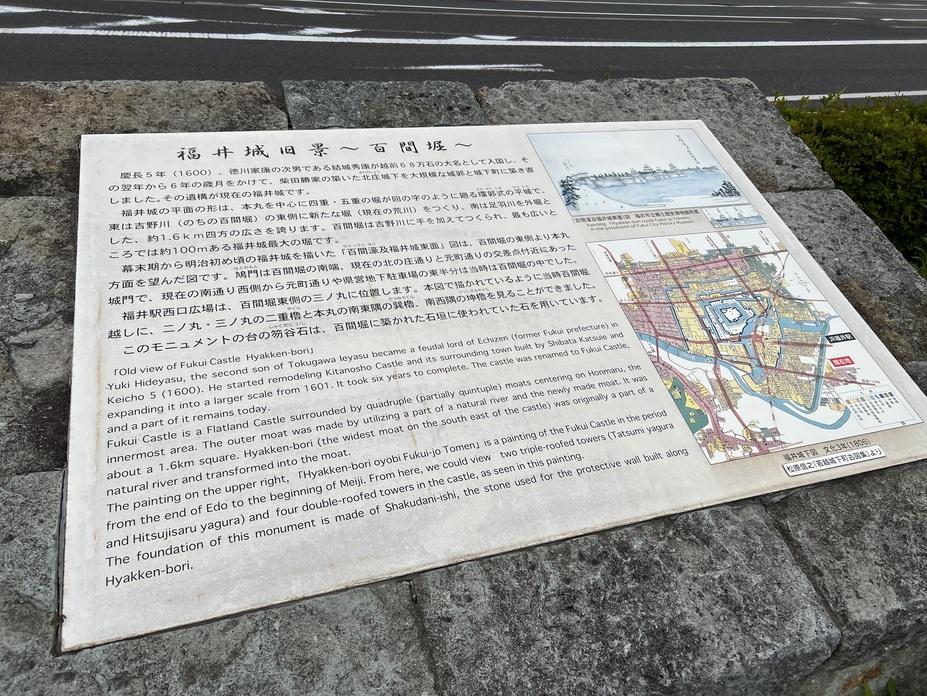 福井城旧景～百間堀～
慶長5年(1600)、徳川家康の次男である結城秀康が越前68万石の大名として入国し、そ
の翌年から6年の歳月をかけて、柴田勝家の築いた北庄城下を大規模な城郭と城下町に築き直
しました。その遺構が現在の福井城です。
福井城の平面の形は、本丸を中心に四重・五重の堀が回の字のように廻る環郭式の平城で、
東は吉野川(のちの百間堀)の東側に新たな堀(現在の荒川)をつくり、南は足羽川を外堀と
した、約1.6km四方の広さを誇ります。百間堀は吉野川に手を加えてつくられ、最も広いと
ころでは約100mある福井城最大の堀です。
幕末期から明治初め頃の福井城を描いた「百間濠及福井城東面」図は、百間堀の東側より本丸
方面を望んだ図です。鳩門は百間堀の南端、現在の北の庄通りと元町通りの交差点付近にあった
城門で、現在の南通り西側から元町通りや県営地下駐車場の東半分は当時は百間堀の中でした。
福井駅西口広場は、百間堀東側の三ノ丸に位置します。本図で描かれているように当時百間堀
越しに、二ノ丸・三ノ丸の二重櫓と本丸の南東隅の巽櫓、南西隅の坤櫓を見ることができました。
このモニュメントの台の笏谷石は、百間堀に築かれた石垣に使われていた石を用いています。
「Old view of Fukui Castle Hyakken-bori」
Yuki Hideyasu, the second son of Tokugawa Ieyasu became a feudal lord of Echizen (former Fukui prefecture) in
Keicho 5 (1600). He started remodeling Kitanosho Castle and its surrounding town built by Shibata Katsuie and
expanding it into a larger scale from 1601. It took six years to complete. The castle was renamed to Fukui Castle,
and a part of it remains today.
Fukui Castle is a Flatland Castle surrounded by quadruple (partially quintuple) moats centering on Honmaru, the
innermost area. The outer moat was made by utilizing a part of a natural river and the newly made moat. It was
about a 1.6km square. Hyakken-bori (the widest moat on the south east of the castle) was originally a part of a
natural river and transformed into the moat.
The painting on the upper right, 「Hyakken-bori oyobi Fukui-jo Tomen」 is a painting of the Fukui Castle in the period
from the end of Edo to the beginning of Meiji. From here, we could view two triple-roofed towers (Tatsumi yagura
and Hitsujisaru yagura) and four double-roofed towers in the castle, as seen in this painting.
The foundation of this monument is made of Shakudani-ishi, the stone used for the protective wall built along
Hyakken-bori.
百間濠及福井城東面図 福井市立郷土歴史博物館所蔵
in the possession of Fukui City History Museum
JR福井駅
現在地
福井城下図 文化3年(1806)
松原信之「若越城下町古図集」より